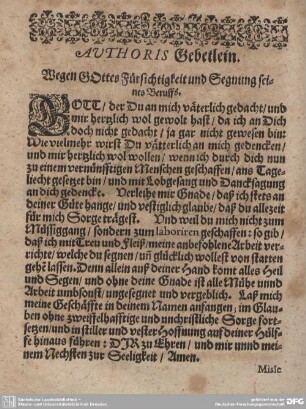 AUTHORIS Gebetlein.
Wegen GOttes Fürsichtigkeit und Segnung sei-
nes Beruffs.
GOTT / der Du an mich väterlich gedacht / und
mir hertzlich wol gewolt hast / da ich an Dich
doch nicht gedacht / ja gar nicht gewesen bin:
Wie vielmehr wirst Du väterlich an mich gedencken /
und mir hertzlich wol wollen / wenn ich durch dich nun
zu einem vernünfftigen Menschen geschaffen / ans Tage-
liecht gesetzet bin / und mit Lobgesang und Dancksagung
an dich gedencke. Verleihe mir Gnade / daß ich stets an
deiner Güte hange / und vestiglich glaube / daß du allezeit
für mich Sorge trägest. Und weil du mich nicht zum
Müssiggang / sondern zum laboriren geschaffen: so gib /
daß ich mit Treu und Fleiß / meine anbefohlene Arbeit ver-
richte / welche du segnen / uñ glücklich wollest von statten
gehē lassen. Denn allein auß deiner Hand komt alles Heil
und Segen / und ohne deine Gnade ist alle Mühe unnd
Arbeit umbsonst / ungesegnet und vergeblich. Laß mich
meine Geschäffte in deinem Namen anfangen; im Glau-
ben ohne zweiffelhafftige und unchristliche Sorge fort-
setzen / und in stiller und vester Hoffnung auf deiner Hülf-
fe hinaus führen: DIR zu Ehren / und mir unnd mei-
nem Nechsten zur Seeligkeit / Amen.
Misse